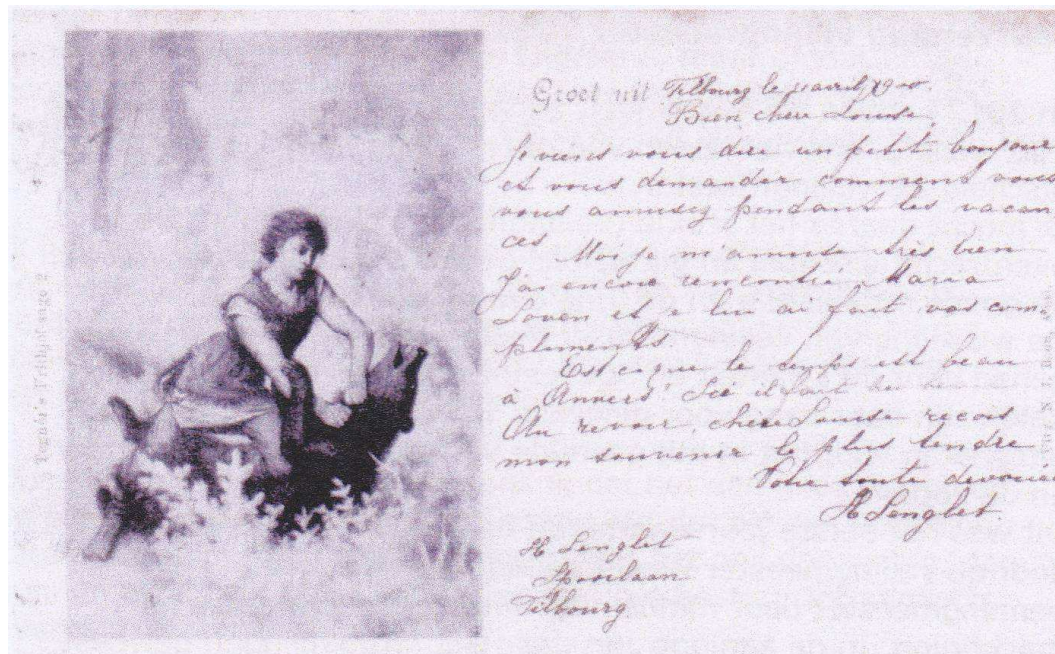 Groet uit Tilbourg le 11 avril 1900.
Bien chère Louise,
Je viens vous dire un petit bonjour
et vous demander comment vous
vous amusez pendant les vacan
ces Moi je m'amuse très bien
J'ai encore rencontré Maria
Loven et je lui ai fait vos com-
pliments.
Est ce que le temps est beau
à Anvers? Ici il fait
Au revoir, chère Louise reçois
mon souvenir le plus tendre
Votre toute dévouée
H Lenglet.
H Lenglet
Tilbourg
Tegnér's Frithjofsage 2